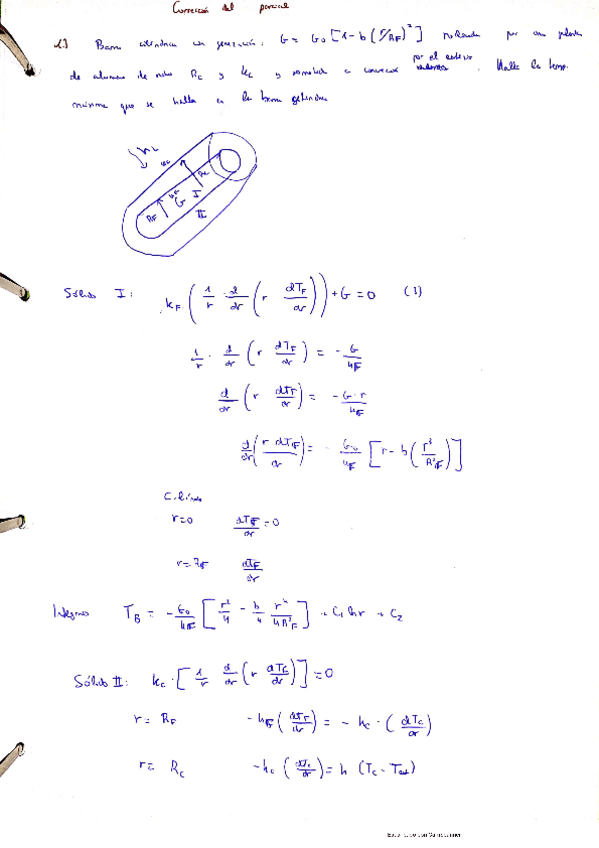 Corrección del parcial
1.) Barra cilíndrica con generación: G = G₀ [1-b(r/RF)²] rodeada por una
de aluminio de radio Rc y kc y sometida a convección por el exterior. Halle la temp.
máxima que se halla en la barra
RF kF G I Rc II
Sólido I: kF (1/r · d/dr (r dTF/dr)) + G = 0 (1)
1/r · d/dr (r dTF/dr) = - G/kF
d/dr (r dTF/dr) = - G·r/kF
d/dr (r dTF/dr) = - G₀/kF [r - b(r³/R²F)]
r=0 dTF/dr = 0
r=RF dTF/dr
Integramos TB = - G₀/kF [r²/4 - b/4 r⁴/4R²F] + C₁ ln r + C₂
Sólido II: kc · [1/r d/dr (r dTc/dr)] = 0
r = RF -kF (dTF/dr) = - kc · (dTc/dr)
r = Rc -kc (dTc/dr) = h (Tc - Text)